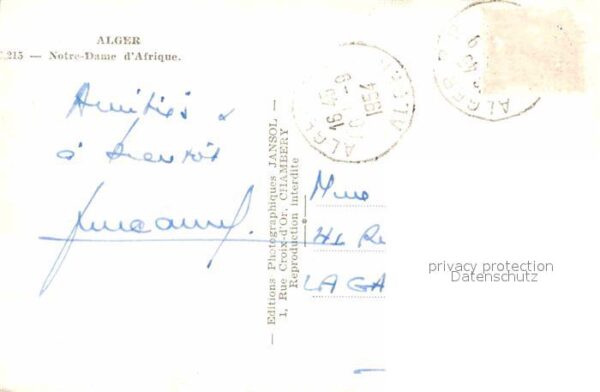 ALGER
215 — Notre-Dame d'Afrique.
Amitiés &
à bientôt
— Editions Photographiques JANSOL —
1, Rue Croix-d'Or, CHAMBERY
Reproduction interdite
ALGE
16 45
1954
ALGER
Mme
41 R
LA GA
privacy protection
Datenschutz